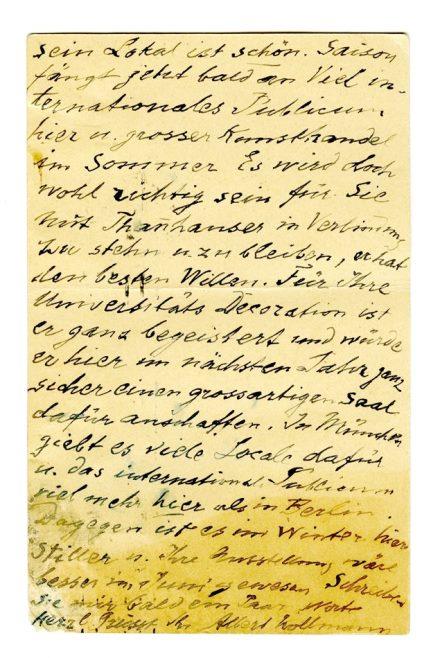 sein Lokal ist schön. Saison
fängt jetzt bald an Viel in-
ternationales Publicum
hier u. grosser Kunsthandel
im Sommer Es wird doch
wohl richtig sein für Sie
mit Thannhauser in Verbinung
zu stehn u. zu bleiben, er hat
den besten Willen. Für ihre
Universitäts Decoration ist
er ganz begeistert und würde
er hier im nächsten Jahr ganz
sicher einen grossartigen Saal
dafür anschaffen. In München
giebt es viele Locale dafür
u. das international. Publicum
viel mehr hier als in Berlin.
Dagegen ist es im Winter hier
stiller u. Ihre Ausstellung wäre
besser im Juni gewesen Schreiben
sie mir bald ein Paar Worte
Herzl. Grüsst Ihr Albert Kollmann